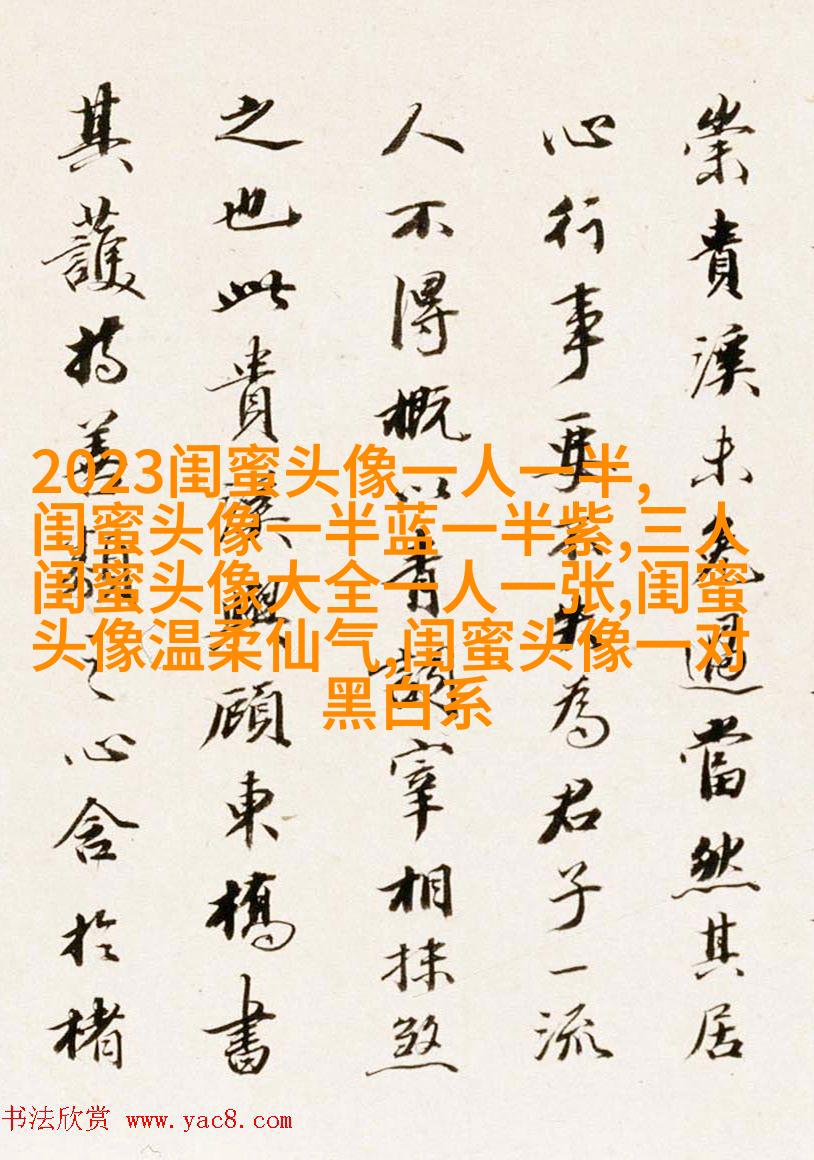 崇貴溪未免過當然其居
心行事要不失為君子一流
人不得概以青詞宰相抹煞
之也此貴溪與顧東橋書
其護持善類之心含於楮
2023闺蜜头像一人一半,
闺蜜头像一半蓝一半紫,三人
闺蜜头像大全一人一张,闺蜜
头像温柔仙气,闺蜜头像一对
黑白系
书法欣赏 www.yac8.com